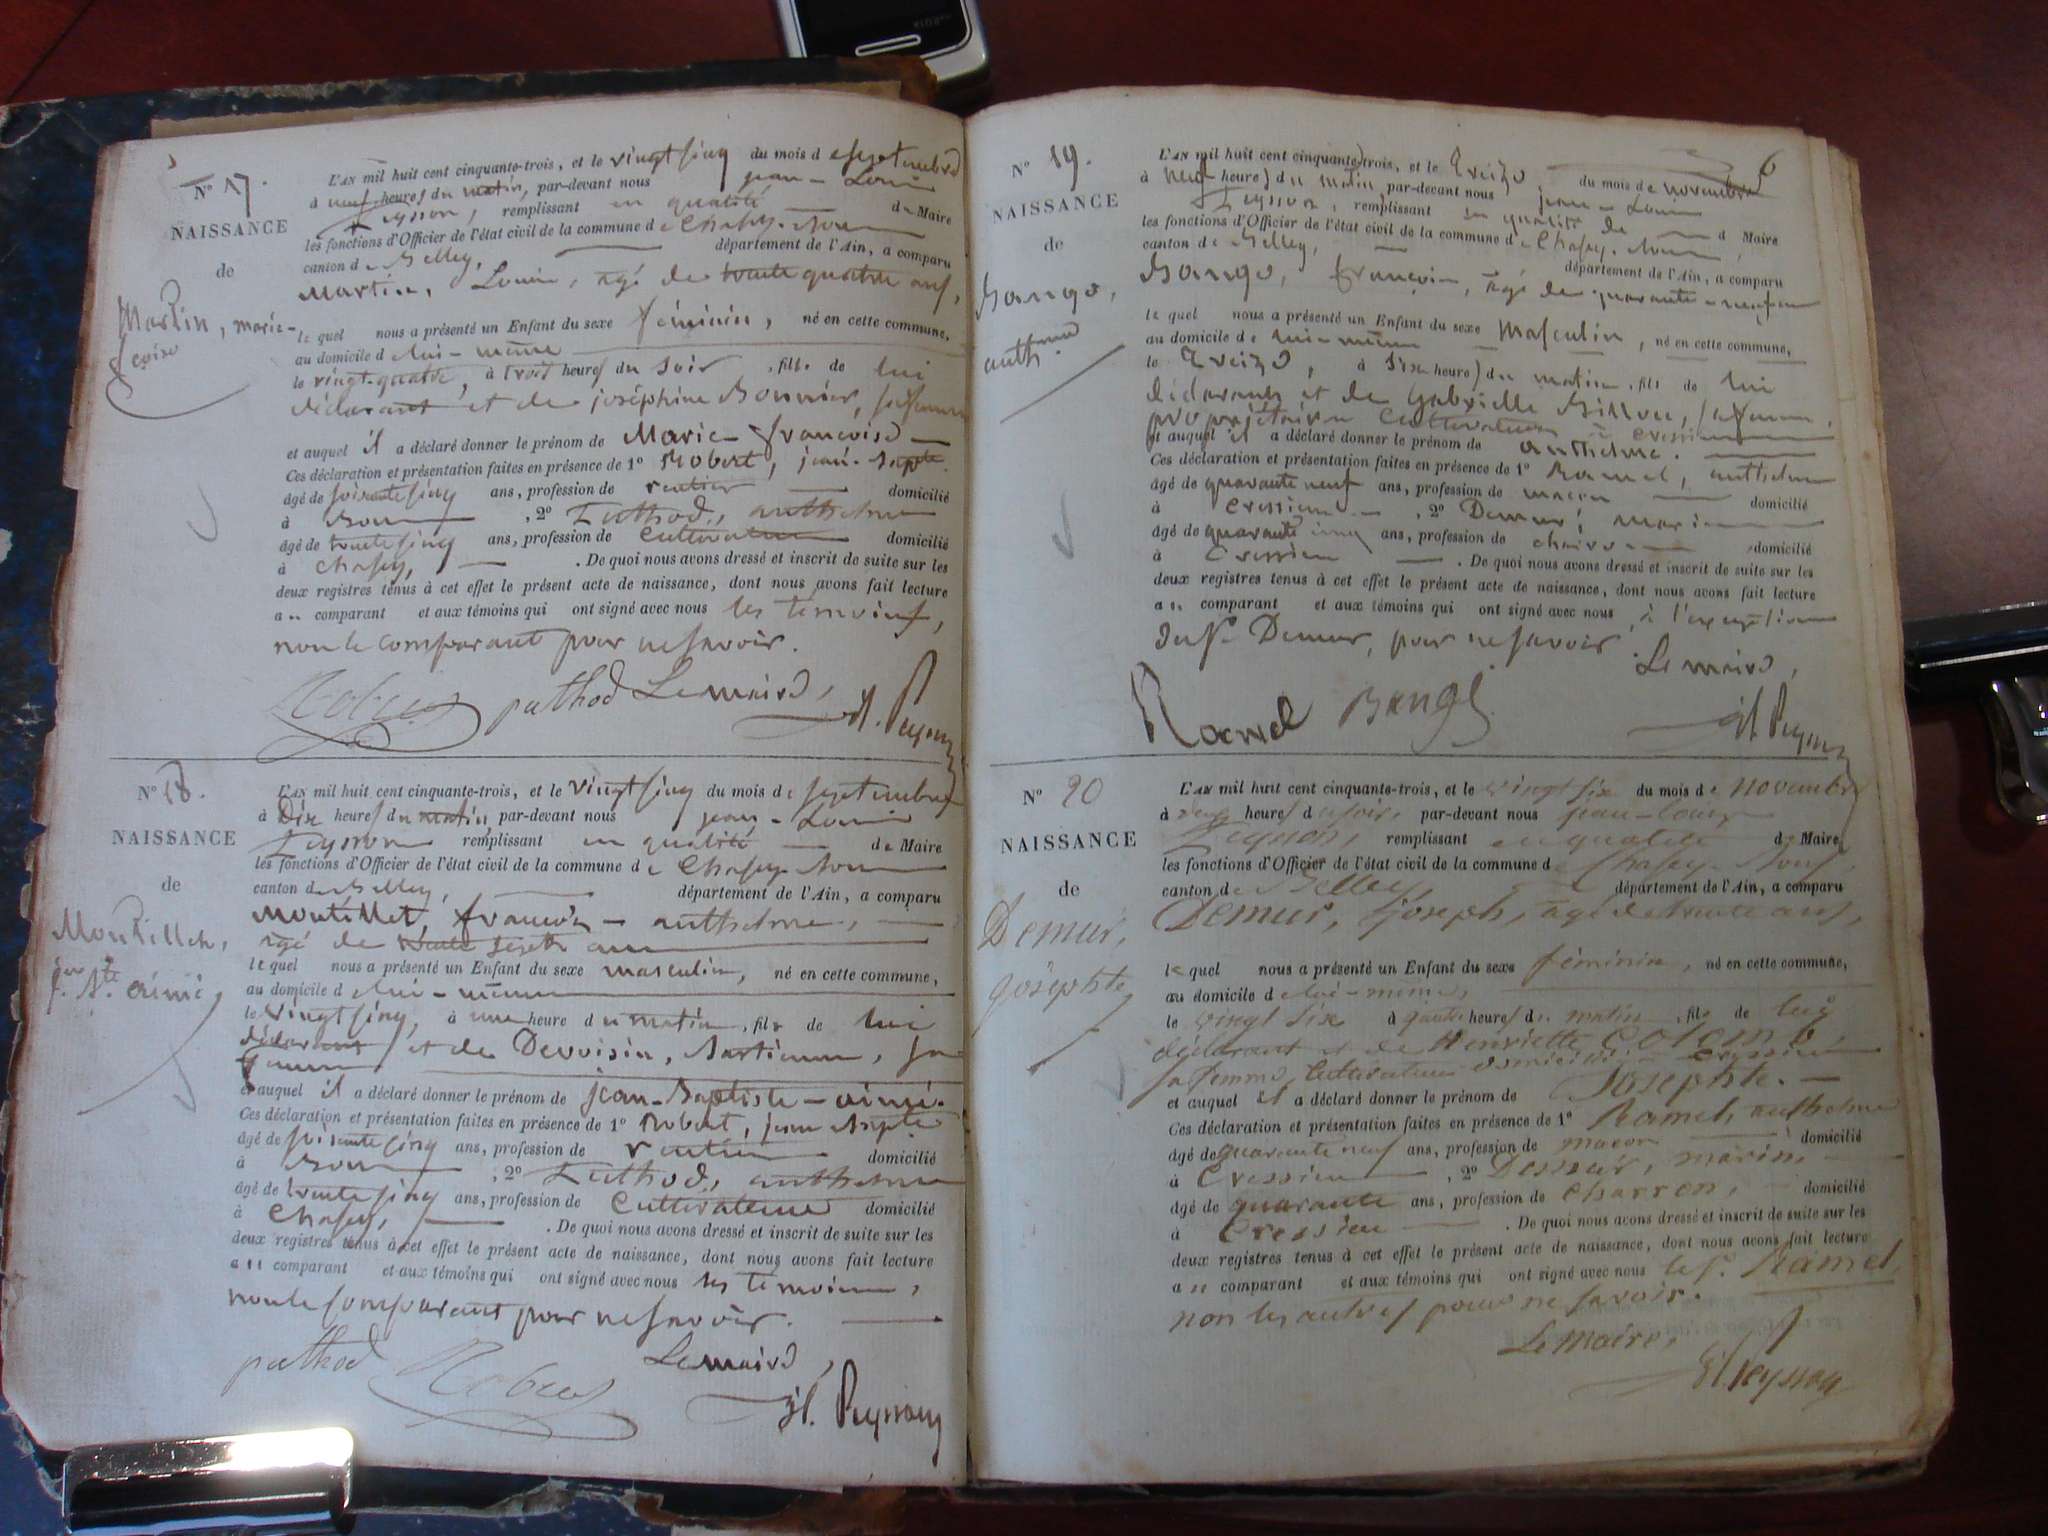 N° 17.
NAISSANCE
de
Martin, marie-
L'AN mil huit cent cinquante-trois, et le vingt sinq du mois de septembre
à neuf heures du matin, par-devant nous jean-Louis
Peysson, remplissant en qualité de Maire
les fonctions d'Officier de l'état civil de la commune de Chasey-Bons
canton de Belley, département de l'Ain, a comparu
Martin, Louis, âgé de trente quatre ans,
lequel nous a présenté un Enfant du sexe féminin, né en cette commune,
au domicile de lui-même
le vingt-quatre, à trois heures du soir, fille de lui
déclarant et de joséphine Bonnier, sa femme
et auquel il a déclaré donner le prénom de Marie-françoise
Ces déclaration et présentation faites en présence de 1° Robert, jean-Bapte
âgé de soixante sinq ans, profession de rentier domicilié
à Bons, 2° Puthod, anthelme
âgé de trente sinq ans, profession de Cultivateur domicilié
à Chasey, . De quoi nous avons dressé et inscrit de suite sur les
deux registres tenus à cet effet le présent acte de naissance, dont nous avons fait lecture
au comparant et aux témoins qui ont signé avec nous les témoins,
non le comparant pour ne savoir.
puthod Le maire,
Jl. Peysson
N° 18.
NAISSANCE
de
Montillet,
jean Bte aimé
L'AN mil huit cent cinquante-trois, et le vingt sinq du mois de septembre
à Dix heures du matin, par-devant nous jean-Louis
Peysson remplissant en qualité de Maire
les fonctions d'Officier de l'état civil de la commune de Chasey-Bons
canton de Belley, département de l'Ain, a comparu
Montillet, françois-anthelme,
âgé de trente sept ans
lequel nous a présenté un Enfant du sexe masculin, né en cette commune,
au domicile de lui-même
le vingt sinq, à une heure du matin, fils de lui
déclarant et de Devoisin, sa
femme
et auquel il a déclaré donner le prénom de jean-Baptiste-aimé.
Ces déclaration et présentation faites en présence de 1° Robert, jean Bapte
âgé de soixante sinq ans, profession de rentier domicilié
à Bons, 2° Puthod, anthelme
âgé de trente sinq ans, profession de Cultivateur domicilié
à Chasey, . De quoi nous avons dressé et inscrit de suite sur les
deux registres tenus à cet effet le présent acte de naissance, dont nous avons fait lecture
au comparant et aux témoins qui ont signé avec nous les témoins,
non le comparant pour ne savoir.
puthod Le maire,
Jl. Peysson
6
N° 19.
NAISSANCE
de
L'AN mil huit cent cinquante-trois, et le treize du mois de novembre
à neuf heures du matin par-devant nous jean-Louis
Peysson, remplissant en qualité de Maire
les fonctions d'Officier de l'état civil de la commune de Chasey-Bons
canton de Belley, département de l'Ain, a comparu
françois, âgé de quarante-neuf ans
lequel nous a présenté un Enfant du sexe Masculin, né en cette commune,
au domicile de lui-même
le treize, à six heures du matin, fils de lui
déclarant et de Gabrielle Billon, sa femme,
propriétaire Cultivateur à Cressieu
et auquel il a déclaré donner le prénom de anthelme.
Ces déclaration et présentation faites en présence de 1° Ramel, anthelme
âgé de quarante neuf ans, profession de maçon domicilié
à Cressieu, 2° Demur, marin
âgé de quarante cinq ans, profession de domicilié
à Cressieu . De quoi nous avons dressé et inscrit de suite sur les
deux registres tenus à cet effet le présent acte de naissance, dont nous avons fait lecture
au comparant et aux témoins qui ont signé avec nous, à l'exception
du Sr. Demur, pour ne savoir Le maire,
Ramel
Jl Peysson
N° 20
NAISSANCE
de
Demur,
Josephte
L'AN mil huit cent cinquante-trois, et le vingt six du mois de novembre
à heures du soir, par-devant nous jean-Louis
Peysson, remplissant en qualité de Maire
les fonctions d'Officier de l'état civil de la commune de Chasey-Bons
canton de Belley, département de l'Ain, a comparu
Demur, Joseph, âgé de trente ans,
lequel nous a présenté un Enfant du sexe féminin, né en cette commune,
au domicile de lui-même,
le vingt six à heures du matin, fille de lui
déclarant et de Henriette Colomb
sa femme, Cultivateurs domiciliés à Cressieu
et auquel il a déclaré donner le prénom de Josephte.
Ces déclaration et présentation faites en présence de 1° Ramel, anthelme
âgé de quarante neuf ans, profession de maçon domicilié
à Cressieu, 2° Demur, marin,
âgé de quarante ans, profession de Charron, domicilié
à Cressieu . De quoi nous avons dressé et inscrit de suite sur les
deux registres tenus à cet effet le présent acte de naissance, dont nous avons fait lecture
au comparant et aux témoins qui ont signé avec nous le Sr. Ramel,
non les autres pour ne savoir.
Le maire,
Jl Peysson